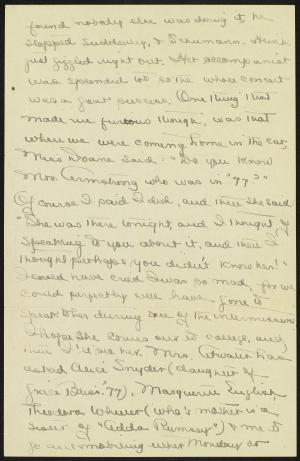 found nobody else was doing it, he
stopped suddenly, & Schumann-Heink
just giggled right out. Her accompanist
was splendid too so the whole concert
was a great success. One thing that
made me furious though, was that
when we were coming home in the car,
Miss Doane said: "Do you know
Mrs. Armstrong who was in '77?"
Of course I said I did, and then she said:
"She was there tonight, and I thought of
speaking to you about it, and then I
thought perhaps you didn't know her!"
I could have cried I was so mad, for we
could perfectly well have gone to
speak to her during one of the intermissions
I hope she comes out to college, and
then I'll see her. Mrs. Atwater has
asked Alice Snyder (daughter of
Grace Bliss '77), Marguerite English,
Theodora Wheeler (who's mother is a
sister of "Adda Rumsey") & me to
go automobiling either Monday or